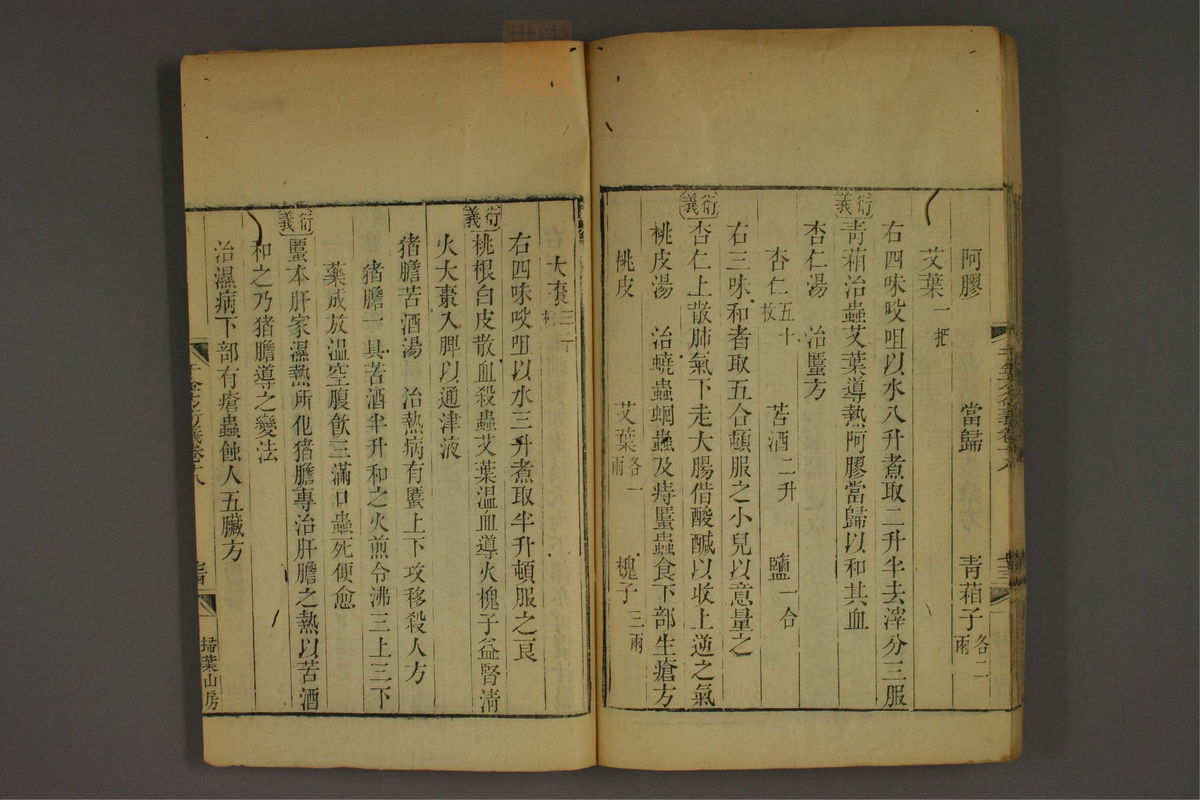 阿膠　當歸　青葙子各二兩
艾葉一把
右四味㕮咀以水八升煮取二升半去滓分三服
衍義
青葙治蟲艾葉導熱阿膠當歸以和其血
杏仁湯　治䘌方
杏仁五十枚　苦酒二升　鹽一合
右三味和煮取五合頓服之小兒以意量之
衍義
杏仁上散肺氣下走大腸借酸鹹以收上逆之氣
桃皮湯　治蟯蟲蛔蟲及痔䘌蟲食下部生瘡方
桃皮　艾葉各一兩　槐子三兩
大棗三十枚
右四味㕮咀以水三升煮取半升頓服之良
衍義
桃根白皮散血殺蟲艾葉温血導火槐子益腎清
火大棗入脾以通津液
猪膽苦酒湯　治熱病有䘌上下攻移殺人方
猪膽一具苦酒半升和之火煎令沸三上三下
藥成放温空腹飲三滿口蟲死便愈
衍義
䘌本肝家濕熱所化猪膽專治肝膽之熱以苦酒
和之乃猪膽導之變法
治濕病下部有瘡蟲蝕人五臟方
掃葉山房